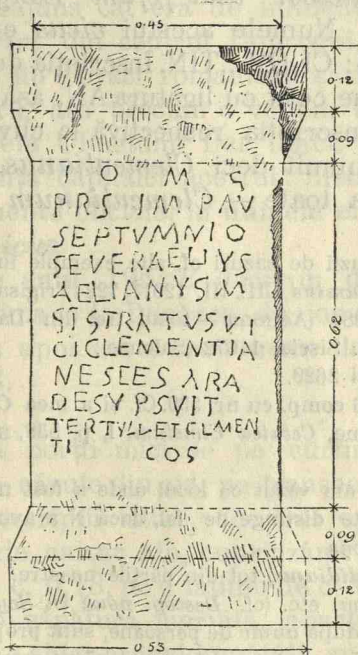 0·45
0·12
0·09
I O M S
PRS IMP AV
SEPTVMNIO
SEVERAELIVS
AELIANVSM
SISTRATVSVI
CICLEMENTIA
NESEES ARA
DESVPSVIT
TERTVLL·ETCLMEN
TI COS
0·62
0·09
0·12
0·53